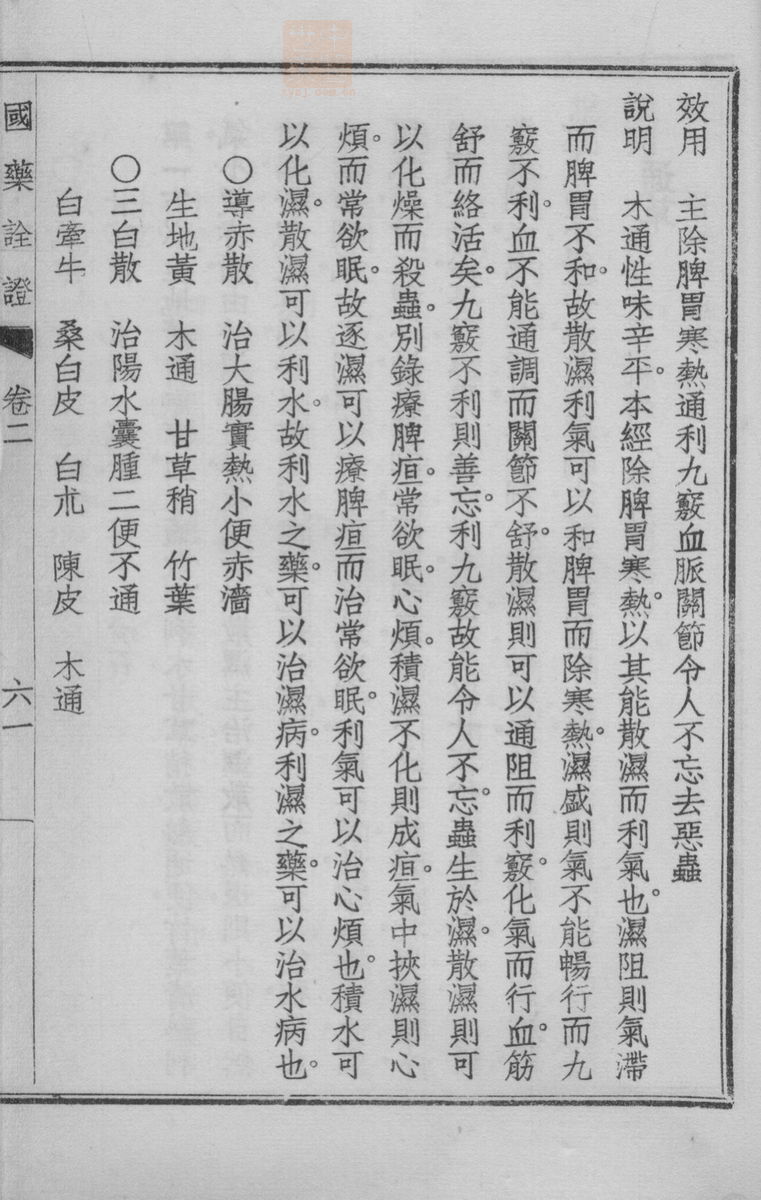 效用　主除脾胃寒熱通利九竅血脈關節令人不忘去惡蟲
說明　木通性味辛平。本經除脾胃寒熱。以其能散濕而利氣也。濕阻則氣滯
而脾胃不和。故散濕利氣可以和脾胃而除寒熱。濕盛則氣不能暢行而九
竅不利。血不能通調而關節不舒。散濕則可以通阻而利竅。化氣而行血。筋
舒而絡活矣。九竅不利則善忘。利九竅故能令人不忘。蟲生於濕。散濕則可
以化燥而殺蟲。別錄療脾疸。常欲眠。心煩。積濕不化則成疸。氣中挾濕則心
煩。而常欲眠。故逐濕可以療脾疸而治常欲眠。利氣可以治心煩也。積水可
以化濕。散濕可以利水。故利水之藥。可以治濕病。利濕之藥。可以治水病也。
〇導赤散　治大腸實熱小便赤濇
生地黃　木通　甘草稍　竹葉
〇三白散　治陽水囊腫二便不通
白牽牛　桑白皮　白朮　陳皮　木通
國藥詮證　卷二　六一